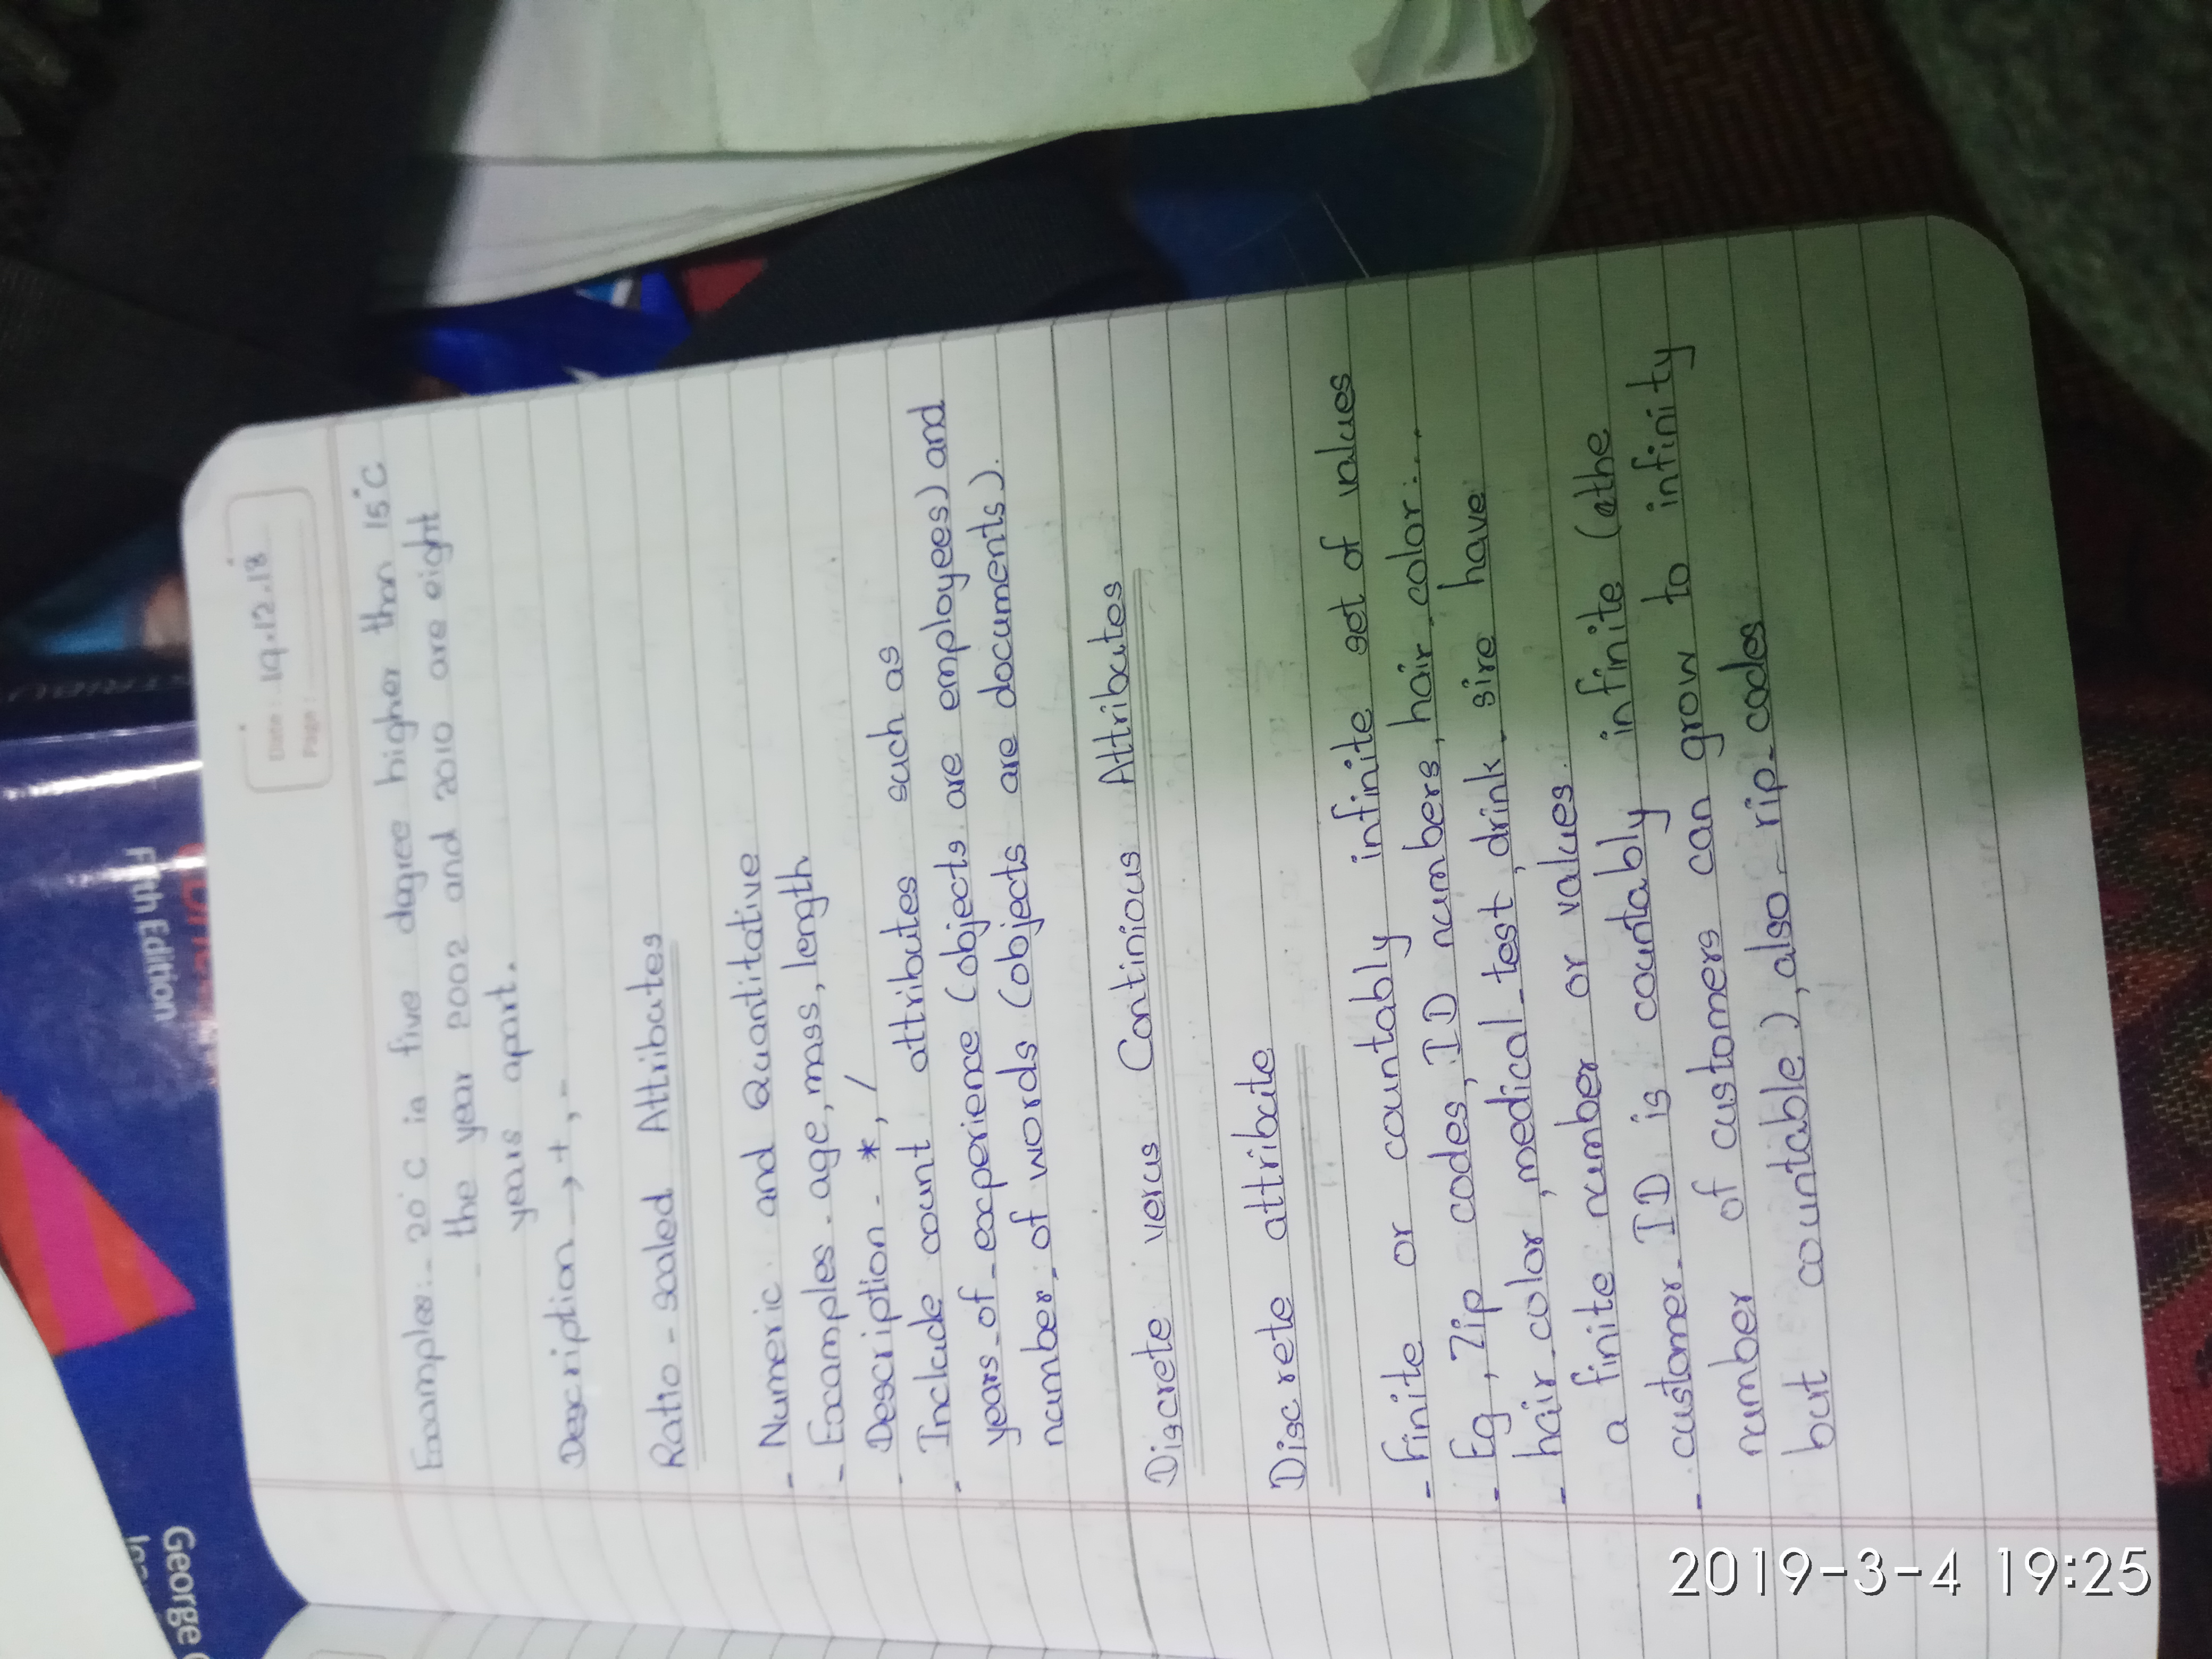 Date: 19.12.18
Page:
Examples:- 20°C is five degree higher than 15°C
the year 2002 and 2010 are eight
years apart.
Description → +, -
Ratio-scaled Attributes
- Numeric and Quantitative
- Examples - age, mass, length
- Description - *, /
- Include count attributes such as
years_of_experience (objects are employees) and
number_of words (objects are documents).
Discrete verus Continious Attributes
Discrete attribute
- Finite or countably infinite set of values
- Eg, Zip codes, ID numbers, hair_color....
- hair_color, medical_test, drink_size have
a finite number or values.
- customer_ID is countably infinite (the
number of customers can grow to infinity
but countable), also - zip_codes
Fifth Edition
George
TRIBU
2019-3-4 19:25